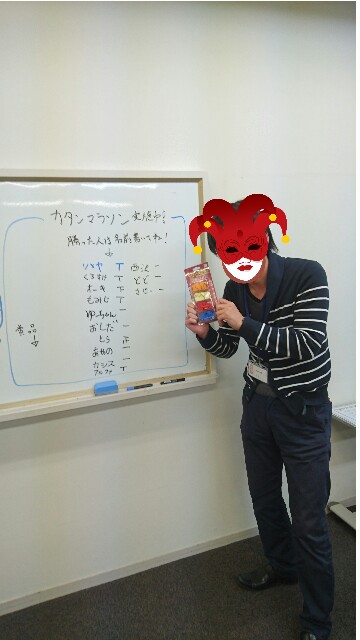 カタンマラソン実施中!
勝った人は名前書いてね!
↓
リハヤ T 西沢 一
くろすけ 下 とど 一
オーキ 下 さじ 一
もみじ T
ゆっちゃん 一
おしだ 一
とら 正
あやの 一
カシス T
アルファ
景品→